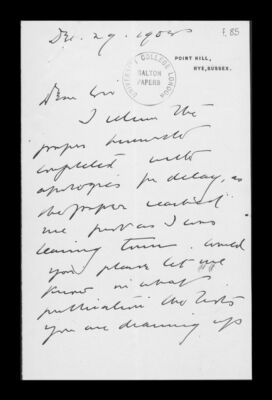 Dec. 29. 1904
f. 85
POINT HILL,
RYE, SUSSEX.
UNIVERSITY COLLEGE LONDON
GALTON
PAPERS
Dear Sir
I return the
paper herewith
completed with
apologies for delay, as
the paper reached
me just as I was
leaving town. Would
you please let me
know in what
publication the lists
you are drawing up